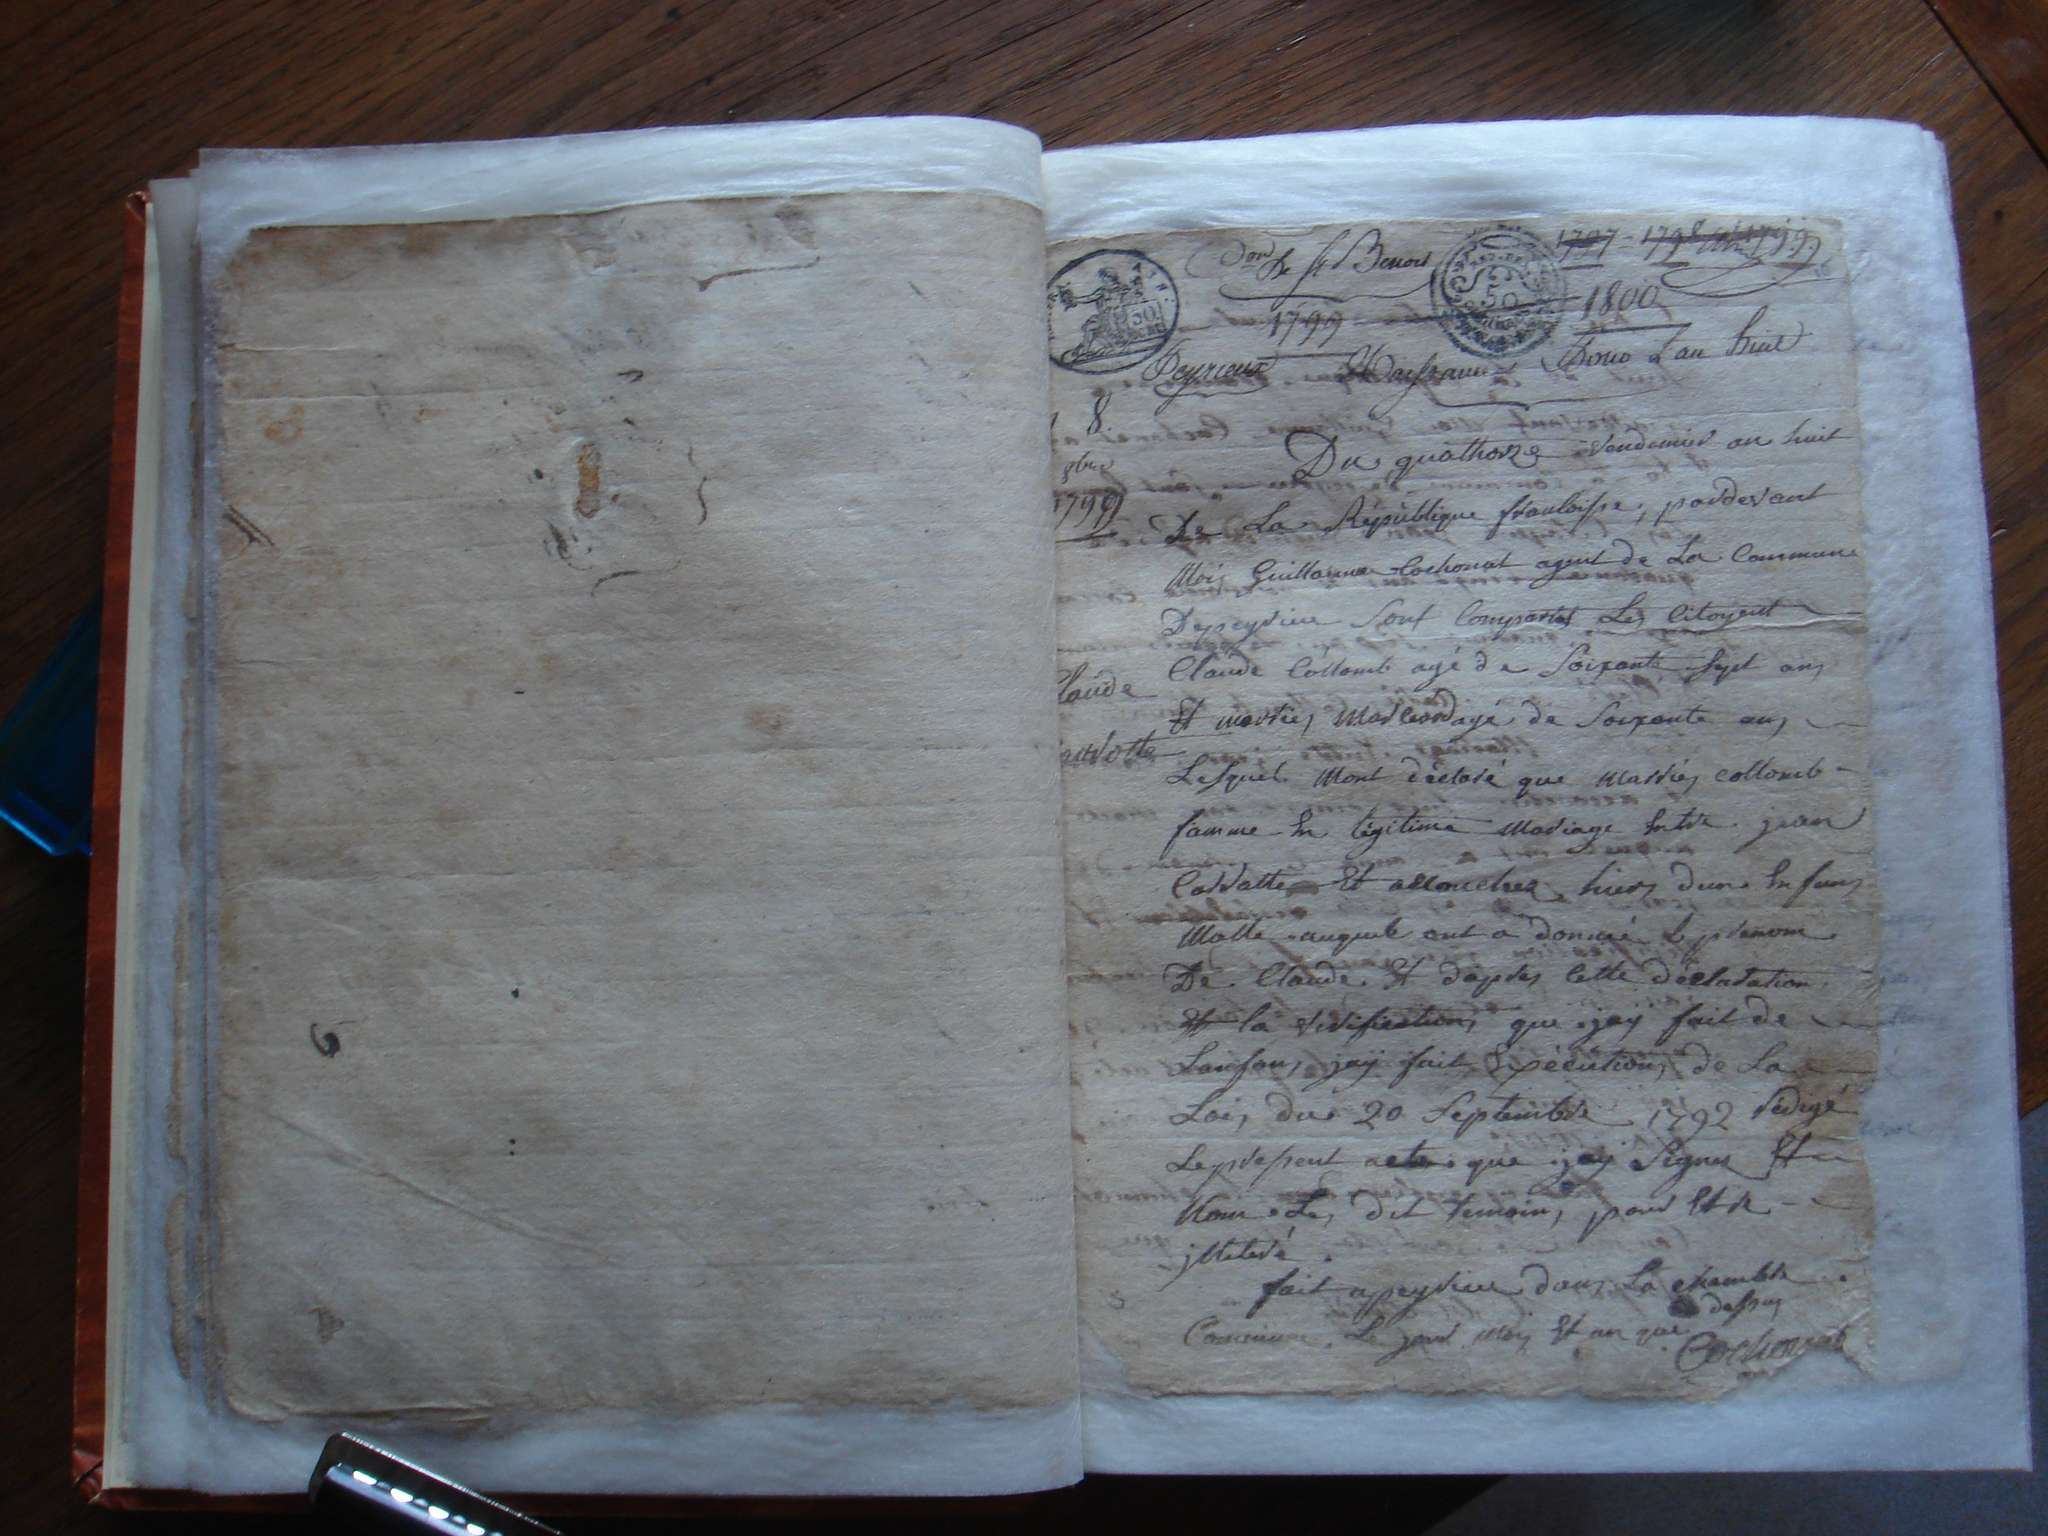 don de St Benoit
1797 - 1798 1799
1799
1800
50
Peyrieux Naissance Pour Lan huit
8.
8bre
1799
Du quathorze vendemier an huit
De La République franloisse, pardevant
Moi, Guillaume Cochonat agent de La Commune
Depeyrieu sont Comparus Les Citoyent
Claude Collomb agé de soixante sept ans
Et
agé de soixante ans
laude
Lesquel Mont déclaré que
collomb
famme En légitime Mariage Entre jean
Carrotte Et accouchez hiers dun Enfans
Malle auquel ont a donné Le prenom
De Claude Et dapres Cette déclaration
Et la verification, que jay fait de
Lanfan, jay fait Expécution, de La
Loi, du 20 Septembre 1792 rédigé
Le present acte que jay Signer Et
Non Les dit temoins, pour Etre
jlliteré.
fait apeyrieu dans La chambre
Commune. Le jour Mois Et an que dessus
Cochonat